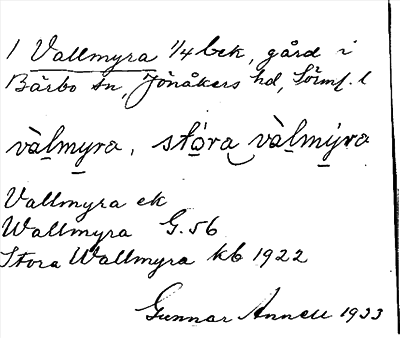 1 Vallmyra 1/4 bck, gård i
Bärbo sn, Jönåkers hd, Sörml. l
vàlmyra, stóra vàlmýra
Vallmyra ek
Wallmyra G. 56
Stora Wallmyra kb 1922
Gunnar Annell 1933